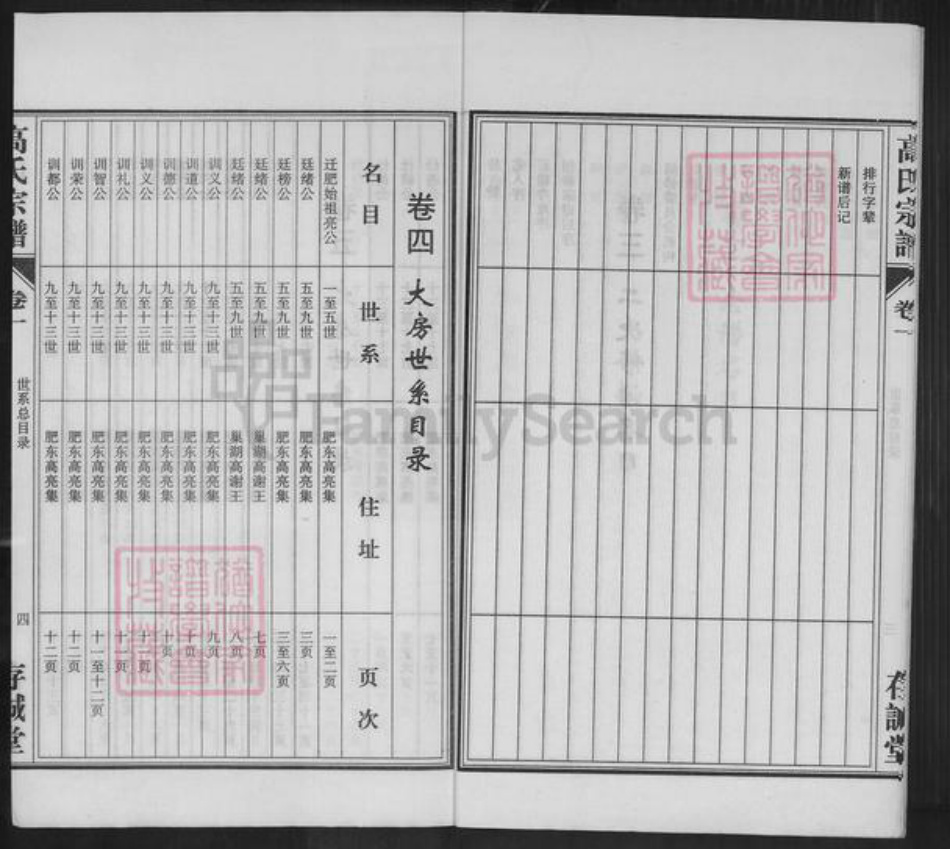 高氏宗譜
卷一
存誠堂
排行字辈
新谱后记
卷四 大房世系目录
名目 世系 住址 页次
迁肥始祖亮公 一至五世 肥东高亮集 一至二页
廷绪公 五至九世 肥东高亮集 三页
廷榜公 五至九世 肥东高亮集 三至六页
廷绪公 五至九世 巢湖高谢王 七页
廷绪公 五至九世 巢湖高谢王 八页
训义公 九至十三世 肥东高亮集 九页
训道公 九至十三世 肥东高亮集 十页
训德公 九至十三世 肥东高亮集 十页
训义公 九至十三世 肥东高亮集
训礼公 九至十三世 肥东高亮集 十一页
训智公 九至十三世 肥东高亮集 十一至十二页
训荣公 九至十三世 肥东高亮集 十二页
训都公 九至十三世 肥东高亮集 十二页
高氏宗譜
卷一
世系总目录
四
存誠堂
FamilySearch